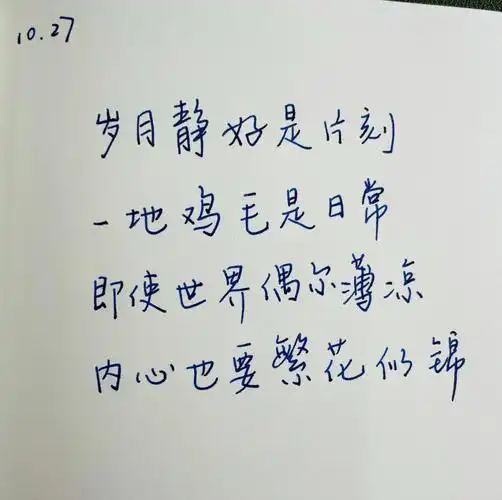 10.27
岁月静好是片刻
一地鸡毛是日常
即使世界偶尔薄凉
内心也要繁花似锦